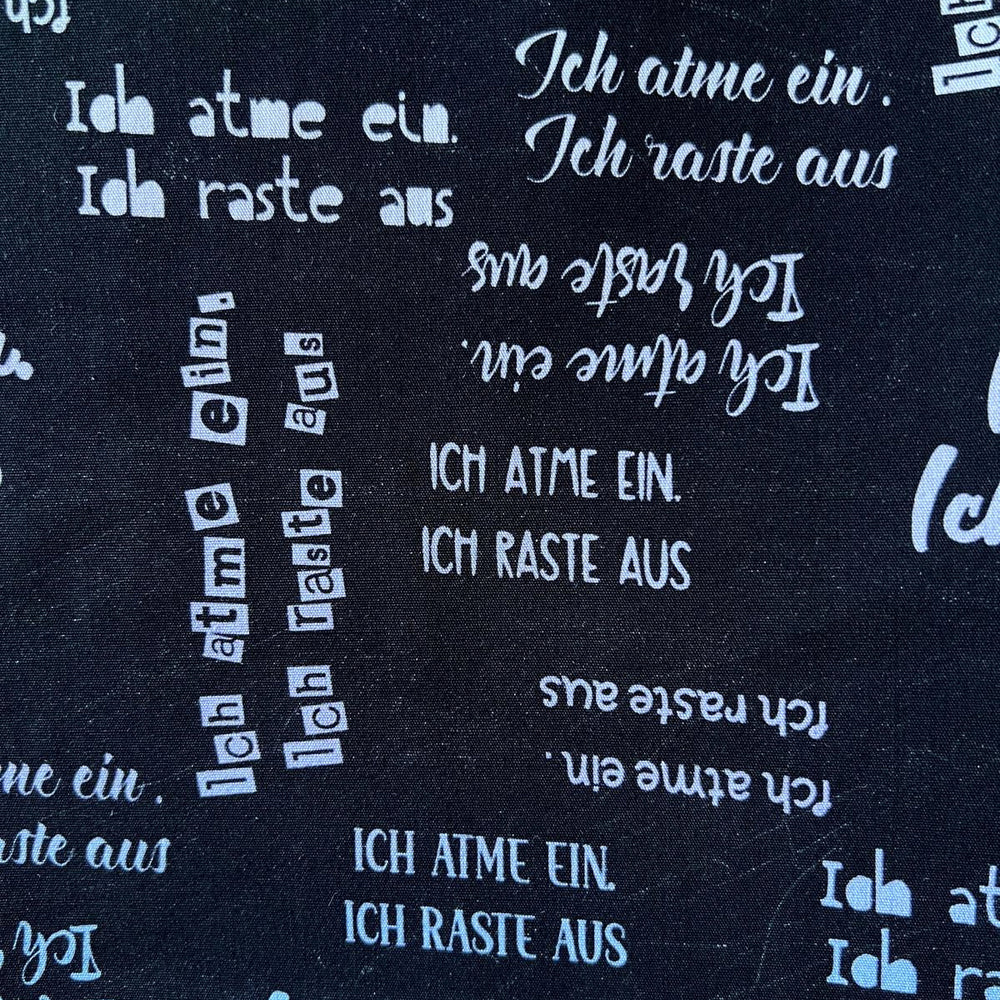 Ich
Ich atme ein.
Ich raste aus
Ich atme ein.
Ich raste aus
Ich
Ich atme ein.
Ich raste aus
Ich atme ein.
Ich raste aus
ICH ATME EIN.
ICH RASTE AUS
Ich atme ein.
Ich raste aus
ein.
aus
ICH ATME EIN.
ICH RASTE AUS
Ich
Ich
Ich